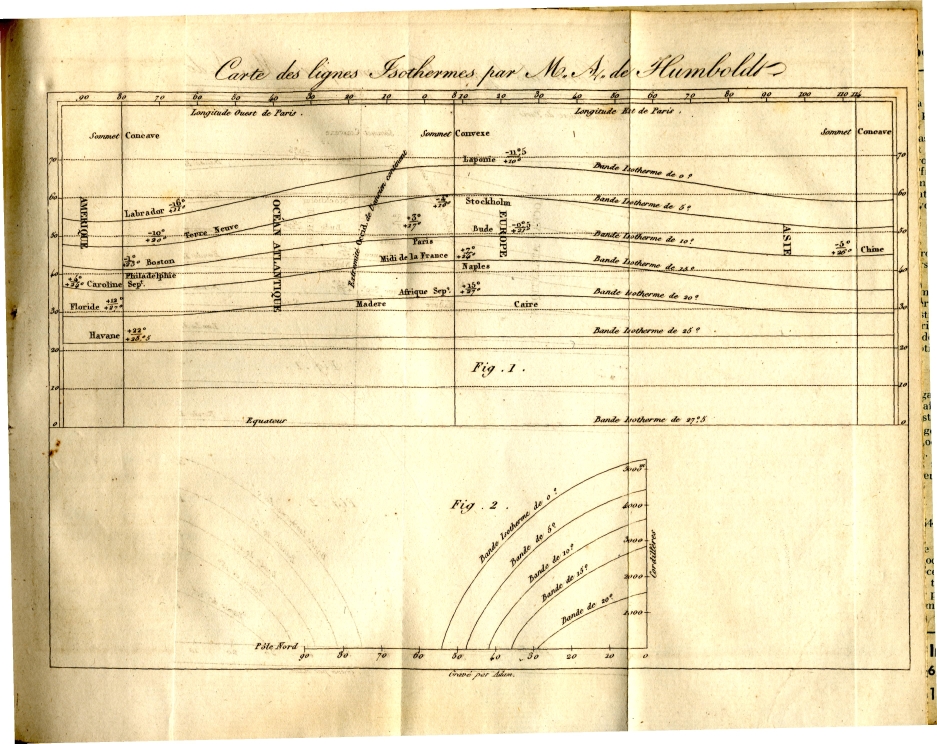 Carte des lignes Isothermes par M. A. de Humboldt
90 80 70 60 50 40 30 20 10 0 8 10 20 30 40 50 60 70 80 90 100 110 114
Longitude Ouest de Paris. Longitude Est de Paris.
Sommet Concave Sommet Convexe Sommet Concave
70 Laponie -11°5 +10° Bande Isotherme de 0° 70
60 60
AMERIQUE
OCÉAN ATLANTIQUE
Extremité Occid. de l'ancien continent
EUROPE
ASIE
Labrador -16° +11°
Stockholm Bande Isotherme de 5°
-10° +20° Terre Neuve
+3° +17°
Bude
50 Paris Bande Isotherme de 10° 50
Boston Midi de la France Chine -5° +26°
Naples Bande Isotherme de 15°
40 Philadelphie 40
Caroline Sept.
Afrique Sept. +15° +27° Bande Isotherme de 20°
Floride +12° +27° Madere Caire
30 30
Havane +22° +28°5 Bande Isotherme de 25°
20 20
Fig. 1
10 10
Equateur Bande Isotherme de 27°5
0 0
Fig. 2
5000
4000
3000
2000
1000
Cordillères
Bande Isotherme de 0°
Bande de 5°
Bande de 10°
Bande de 15°
Bande de 20°
Pôle Nord
90 80 70 60 50 40 30 20 10 0
Gravé par Adam.